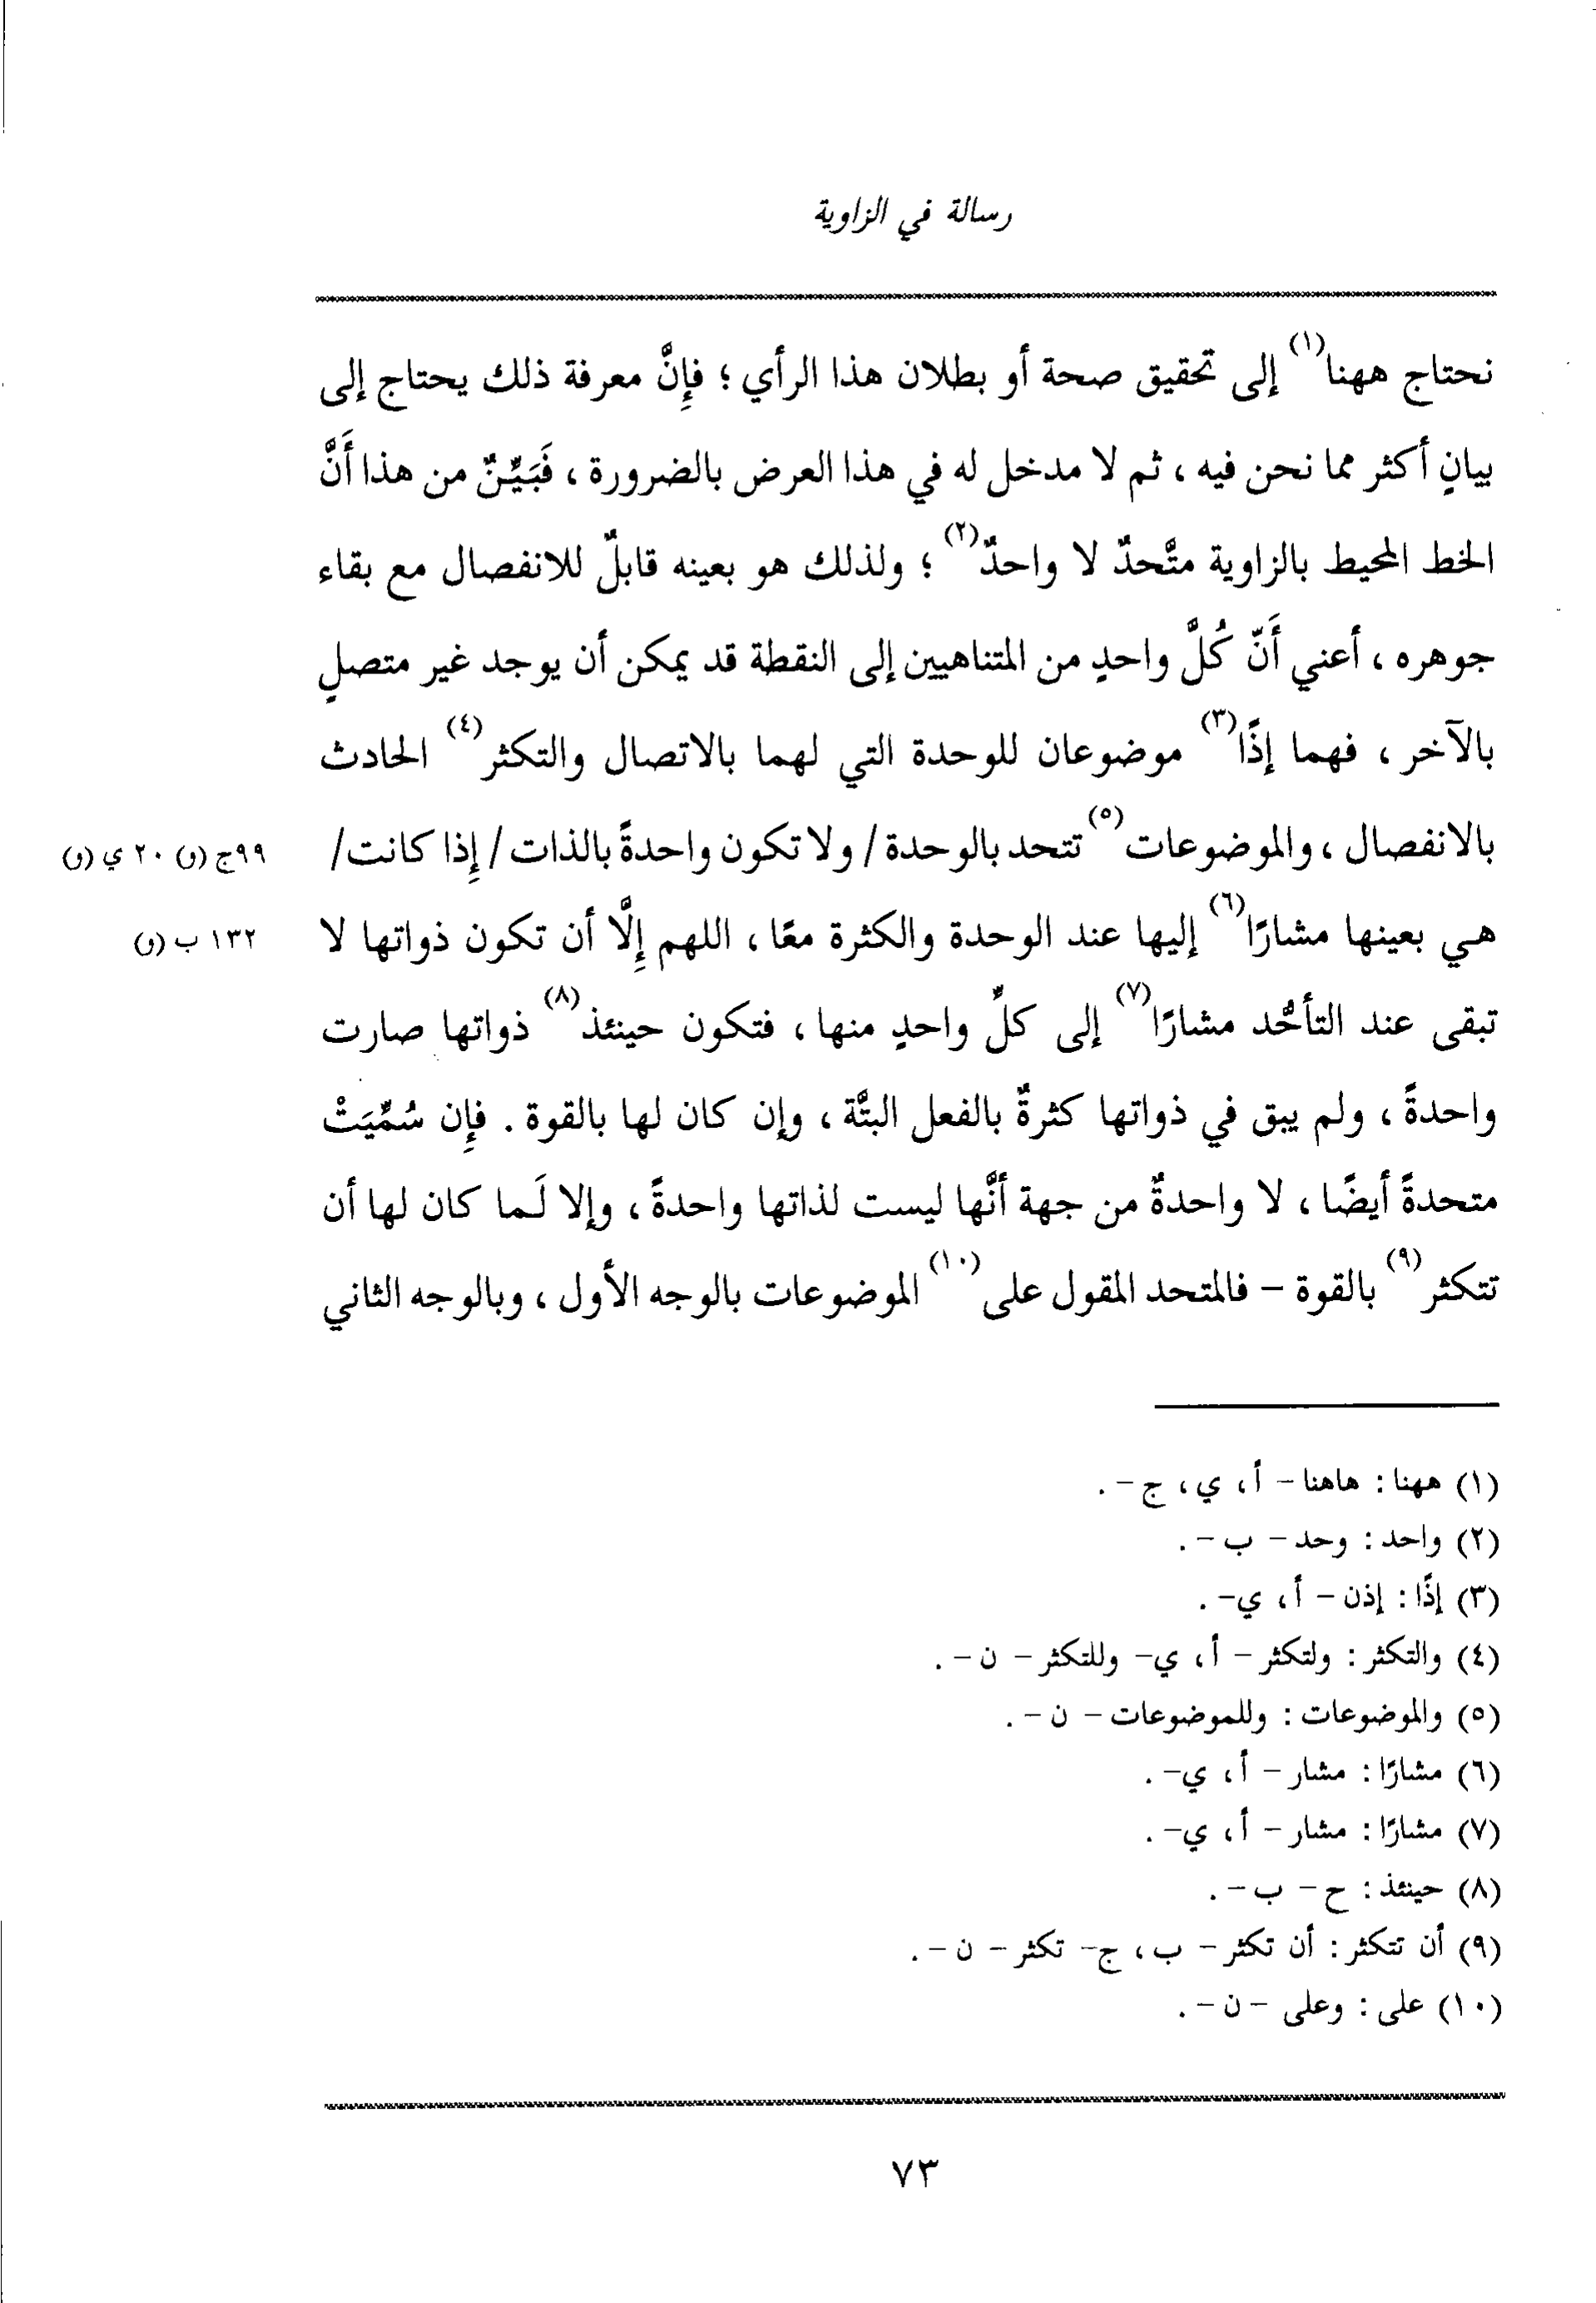 رسالة في الزاوية
نحتاج ههنا(١) إلى تحقيق صحة أو بطلان هذا الرأي ؛ فإِنَّ معرفة ذلك يحتاج إلى
بيانٍ أكثر مما نحن فيه ، ثم لا مدخل له في هذا العرض بالضرورة ، فَبَيِّنٌ من هذا أَنَّ
الخط المحيط بالزاوية متَّحدٌ لا واحدٌ(٢) ؛ ولذلك هو بعينه قابلٌ للانفصال مع بقاء
جوهره ، أعني أَنّ كُلَّ واحدٍ من المتناهيين إلى النقطة قد يمكن أن يوجد غير متصلٍ
بالآخر ، فهما إذًا(٣) موضوعان للوحدة التي لهما بالاتصال والتكثر(٤) الحادث
بالانفصال ، والموضوعات(٥) تتحد بالوحدة / ولا تكون واحدةً بالذات / إِذا كانت/ ٩٩ج (و) ٢٠ ي (و)
هي بعينها مشارًا(٦) إليها عند الوحدة والكثرة معًا ، اللهم إِلَّا أن تكون ذواتها لا ١٣٢ ب (و)
تبقى عند التأحُّد مشارًا(٧) إلى كلِّ واحدٍ منها ، فتكون حينئذ(٨) ذواتها صارت
واحدةً ، ولم يبق في ذواتها كثرةٌ بالفعل البتَّة ، وإن كان لها بالقوة . فإِن سُمِّيَتْ
متحدةً أيضًا ، لا واحدةٌ من جهة أنَّها ليست لذاتها واحدةً ، وإلا لَـما كان لها أن
تتكثر(٩) بالقوة – فالمتحد المقول على(١٠) الموضوعات بالوجه الأول ، وبالوجه الثاني
(١) ههنا : هاهنا – أ ، ي ، ج – .
(٢) واحد : وحد – ب – .
(٣) إذًا : إذن – أ ، ي– .
(٤) والتكثر : ولتكثر – أ ، ي– وللتكثر – ن – .
(٥) والموضوعات : وللموضوعات – ن – .
(٦) مشارًا : مشار – أ ، ي– .
(٧) مشارًا : مشار – أ ، ي– .
(٨) حينئذ : ح – ب – .
(٩) أن تتكثر : أن تكثر – ب ، ج– تكثر – ن – .
(١٠) على : وعلى – ن – .
٧٣